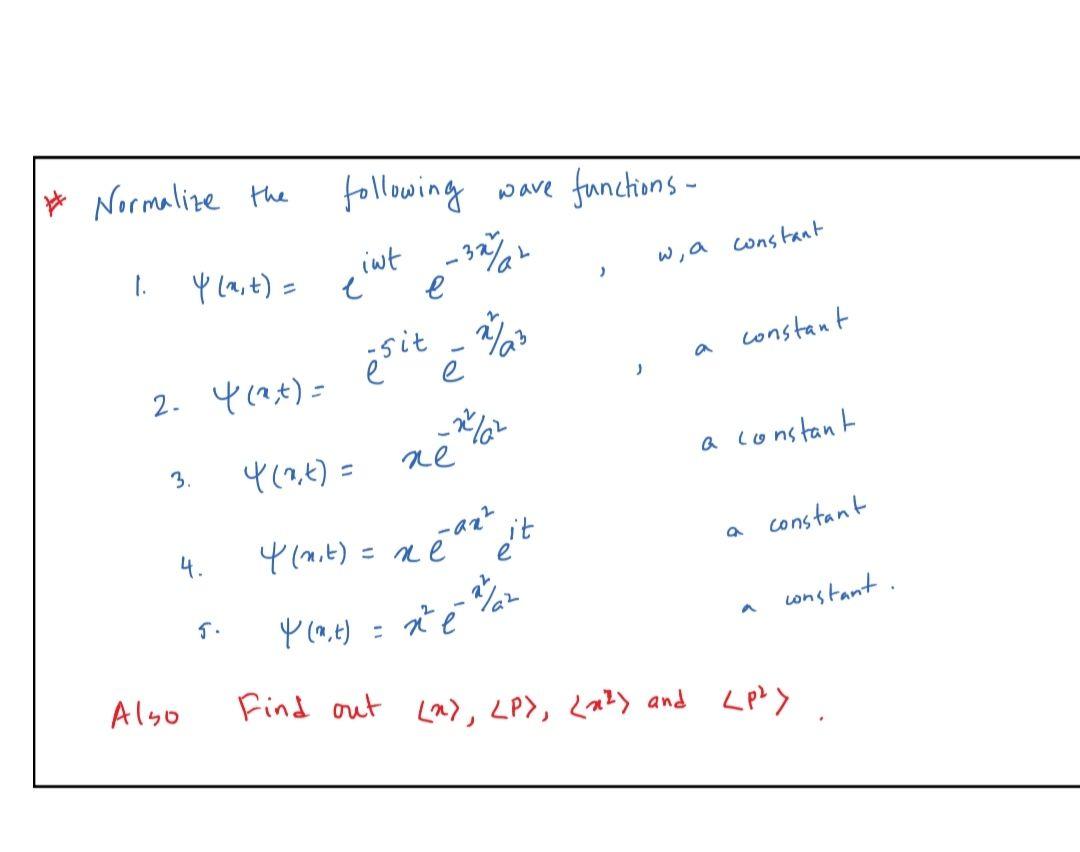 * Normalize the following wave functions -
1. Ψ(x,t) = e^{iwt} e^{-3x²/a²} , w,a constant
2. Ψ(x,t) = e^{-5it} e^{-x²/a³} , a constant
3. Ψ(x,t) = xe^{-x²/a²} a constant
4. Ψ(x,t) = xe^{-ax²} e^{it} a constant
5. Ψ(x,t) = x²e^{-x²/a²} a constant.
Also Find out <x>, <P>, <x²> and <p²>.